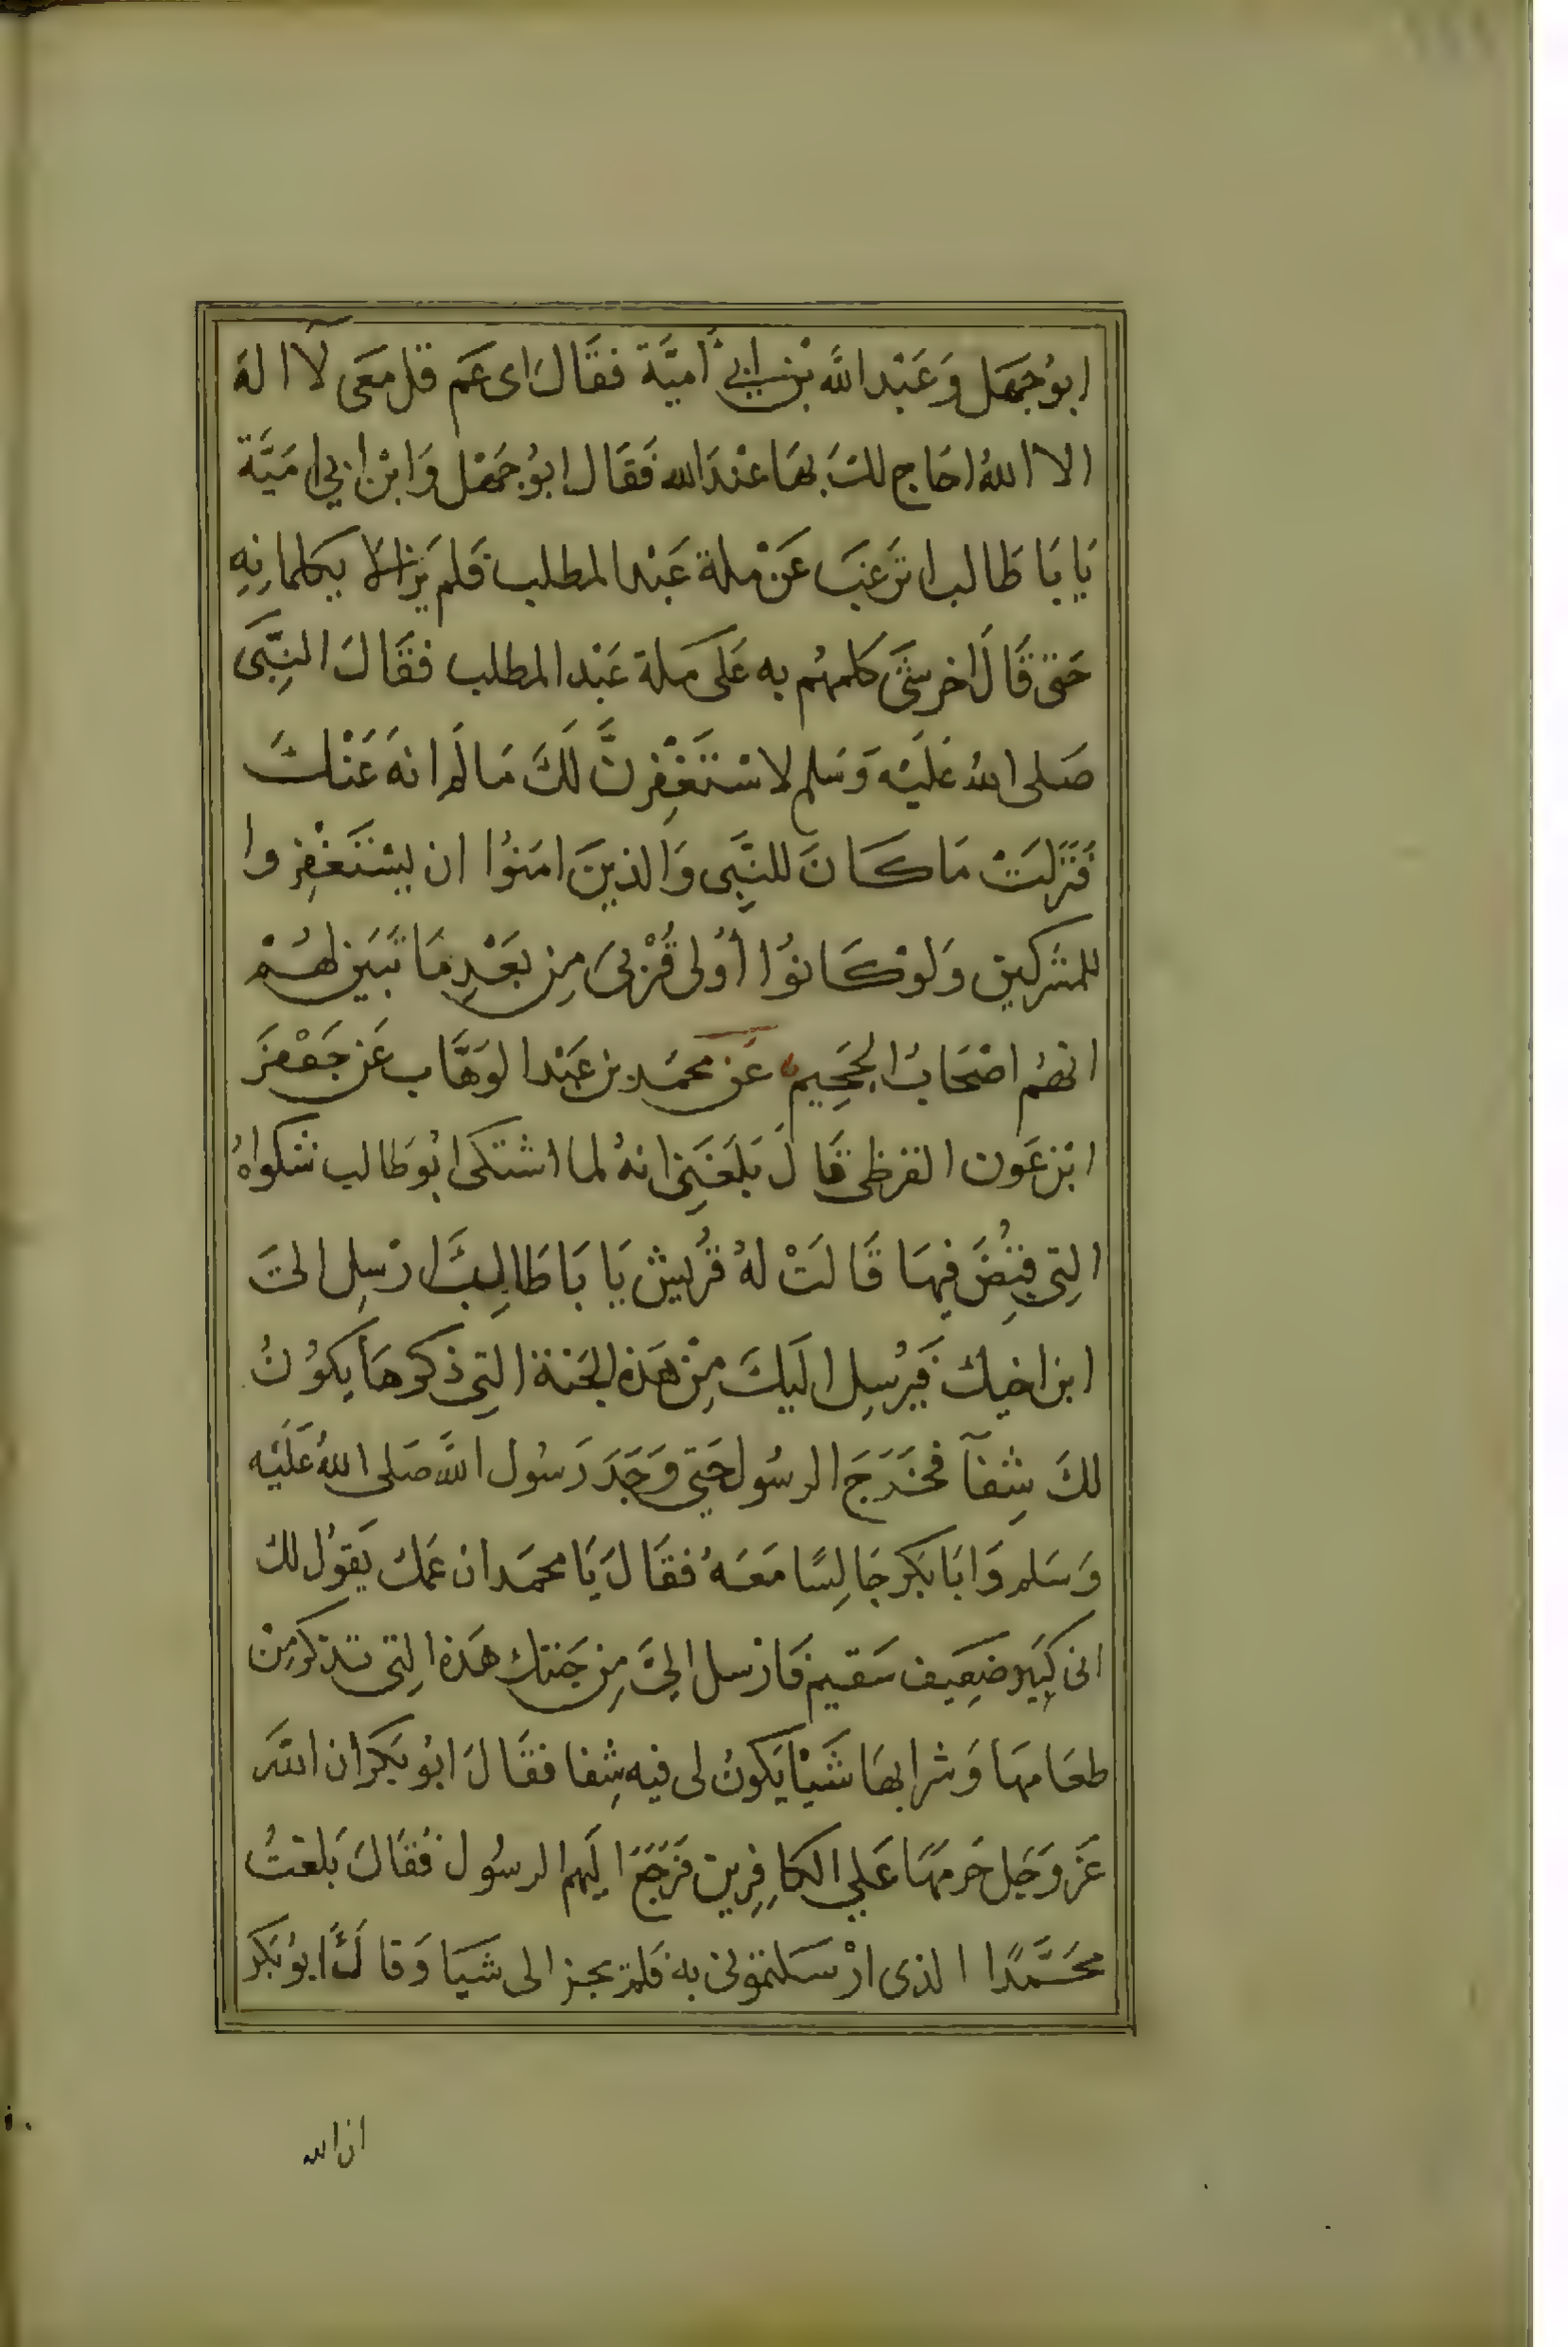 ابوُجَهَل وَعَبْد اللَّه بْن ابي أُميَّة فقَالَ اى عَم قل مَعَى لآ اله
الا اللهُ احَاج لكَ بهَا عنْدَ الله فَقَال ابوُ جَهْل وَابْن ابي اميَّة
يَا بَا طَالب اترَغبَ عَنْ ملة عَبْد المطلب فَلم يَزالا يكلمانِهِ
حَتىّ قَالَ اخر شَىَ كلمهُم به عَلَى مَلة عَبْد المطلب فقَالَ النِبَّى
صَلى اللهُ عَليْه وَسَلم لاسْتَغْفِرنَّ لَكَ مَا لَم انهَ عَنْكَ
فَنَزلَتْ مَا كَانَ للنبِّى وَالذينَ امَنوُا ان يسْتَغْفِروا
للمشركين وَلوْ كَانوُا أوُلى قُرْبىَ مِن بَعْدِ مَا تَبَين لهُمْ
انهُم اصْحَابُ الجَحِيم عَن محمَد بن عَبْد الوَهَّاب عَن جَعْفَر
ابْن عَون القرظى قَالَ بَلَغَنِى انهُ لما اشتكى ابُو طَالب شكواهُ
التِى قبُضَ فيهَا قَالَتْ لهُ قُريش يَا بَا طَالِبَّ ارْسِل الىَ
ابن اخيك فَيرُسِل اليَكَ مِنْ هَذه الجَنة التِى ذكرهَا يكوُنُ
لكَ شِفآ فخَرَجَ الرسُول حَتىّ وَجَدَ رَسُول اللَّه صَلى اللهُ عَليْه
وَسَلم وَابَا بَكر جَالِسًا مَعَهُ فقَالَ يَا محمَد ان عَمك يَقوُل لك
انى كبِيَر ضَعِيف سَقيم فَارْسل الىَّ مِن جَنتك هَذه التِى تذكر مِنْ
طعَامهَا وَشرابهَا شَيْأ يَكونُ لى فيه شِفا فقَالَ ابُو بَكر ان اللَّه
عَز وَجَل حَرمهَا عَلى الكافِرِين فَرَجَعَ اليَهم الرسُول فقَالَ بَلغتُ
محَمَّدًا الذى ارْسَلتمونى به فَلم يجز الى شَيَا وَقالَ ابوُ بَكر
ان الله